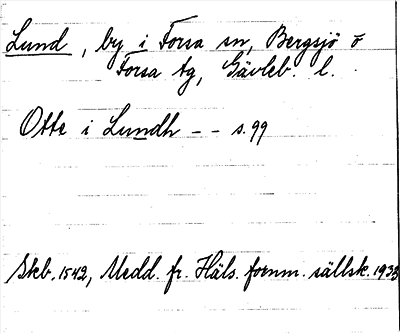 Lund, by i Forsa sn, Bergsjö o
Forsa tg, Gävleb. l.
Otte i Lundh - - s. 99
Skb. 1542, Medd. fr. Häls. fornm. sällsk. 1938